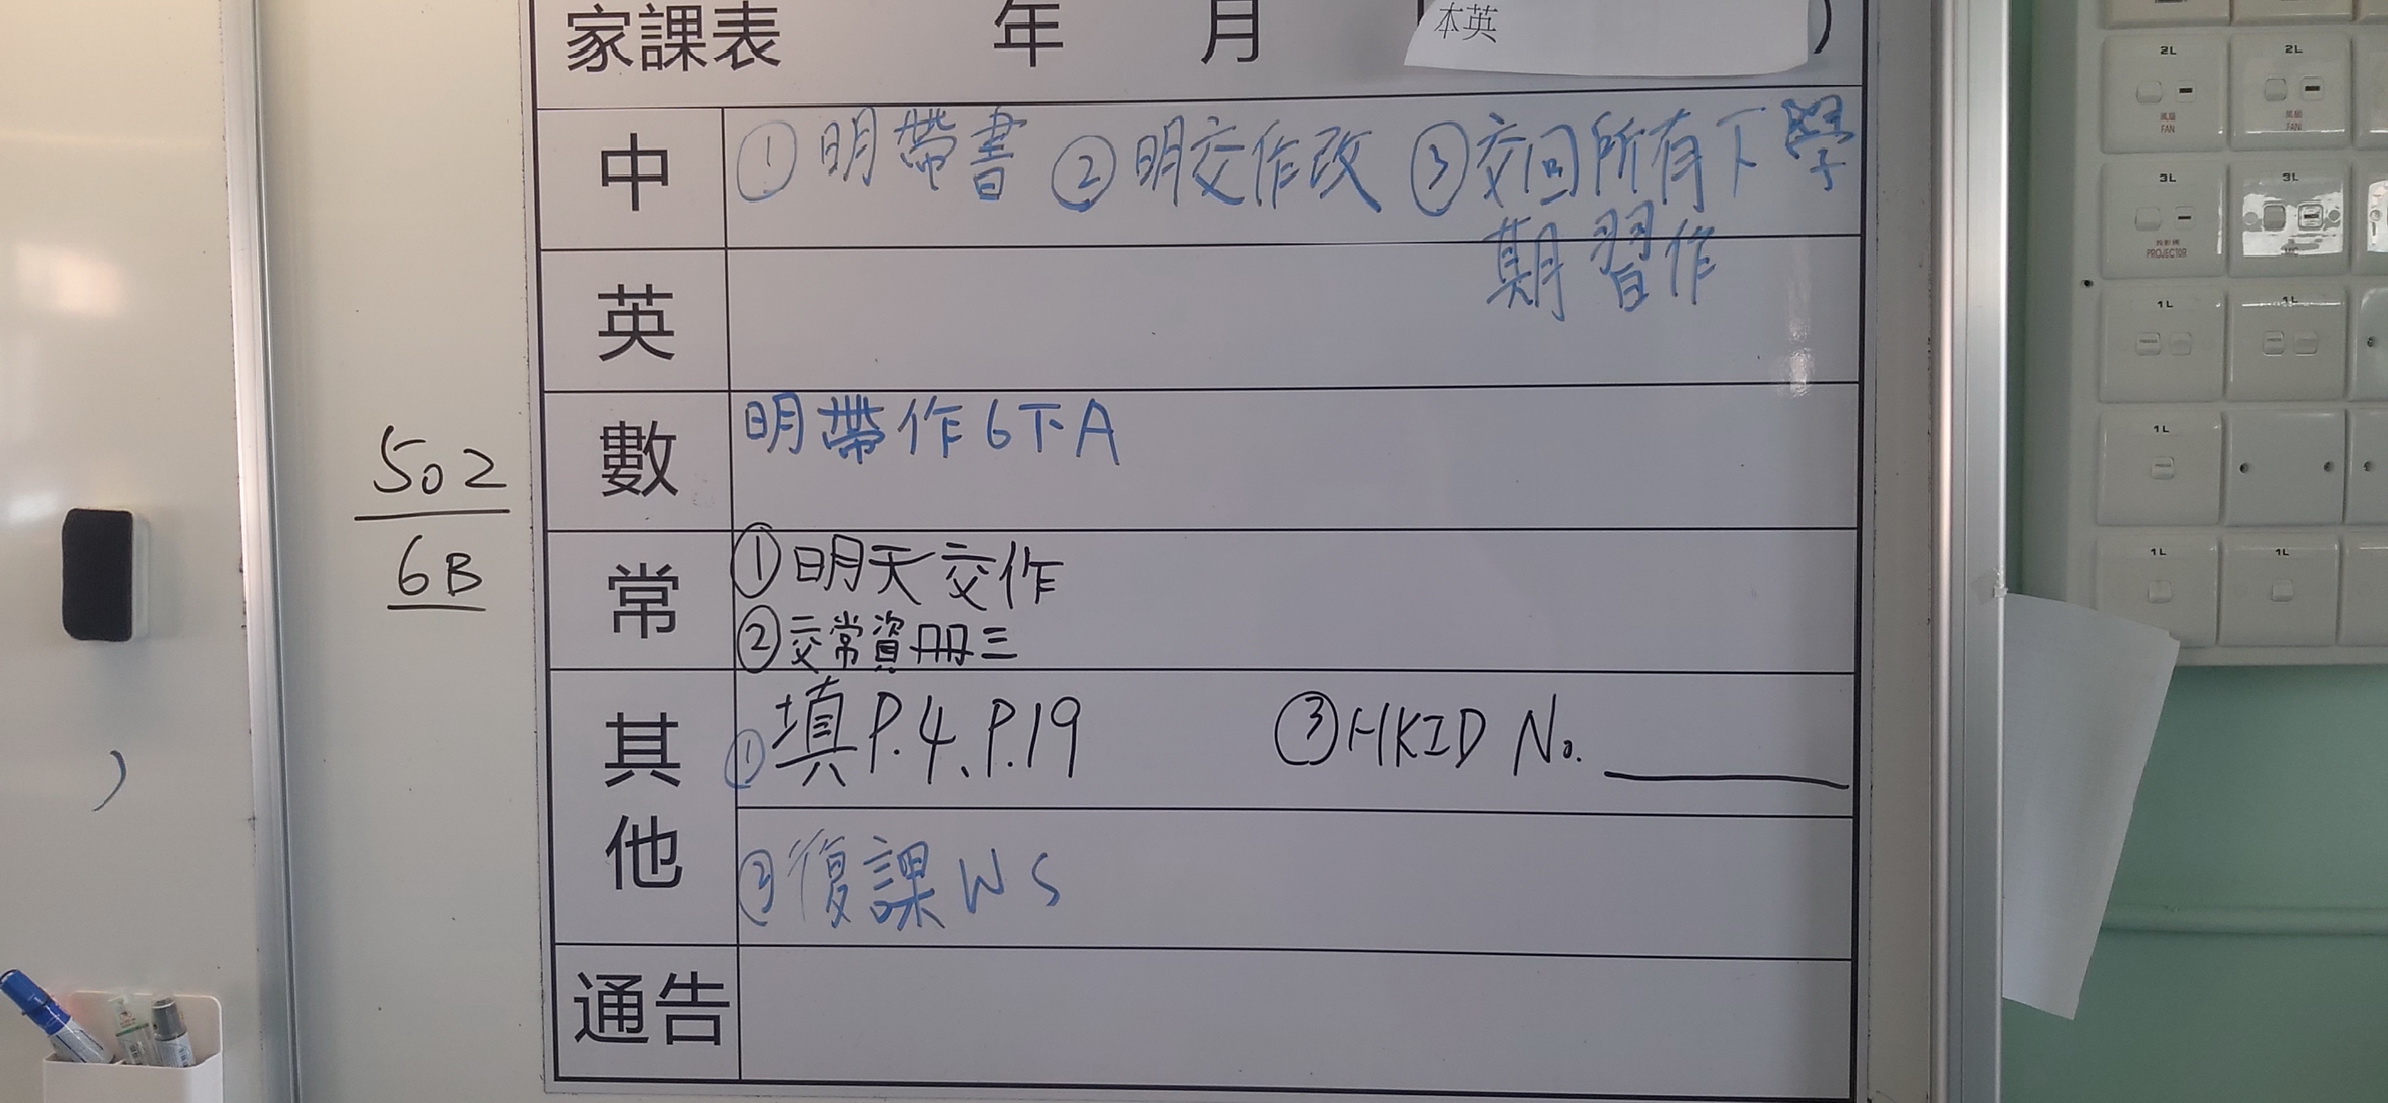 家課表 年 月 )
本英
中 ①明帶書 ②明交作改 ③交回所有下學
期習作
英
數 明帶作6下A
常 ①明天交作
②交常資冊三
其他 ①填P.4、P.19 ③HKID No.
②復課WS
通告
502
6B
2L
風扇
FAN
2L
風扇
FAN
3L
投影機
PROJECTOR
3L
1L
1L
1L
1L
1L